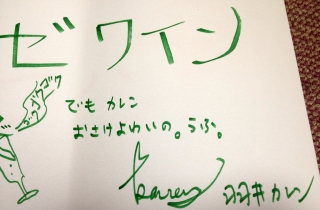 ゼワイン
ゴクゴクゴク
でもカレン
おさけよわいの。うふ。
Karen
羽井カレン